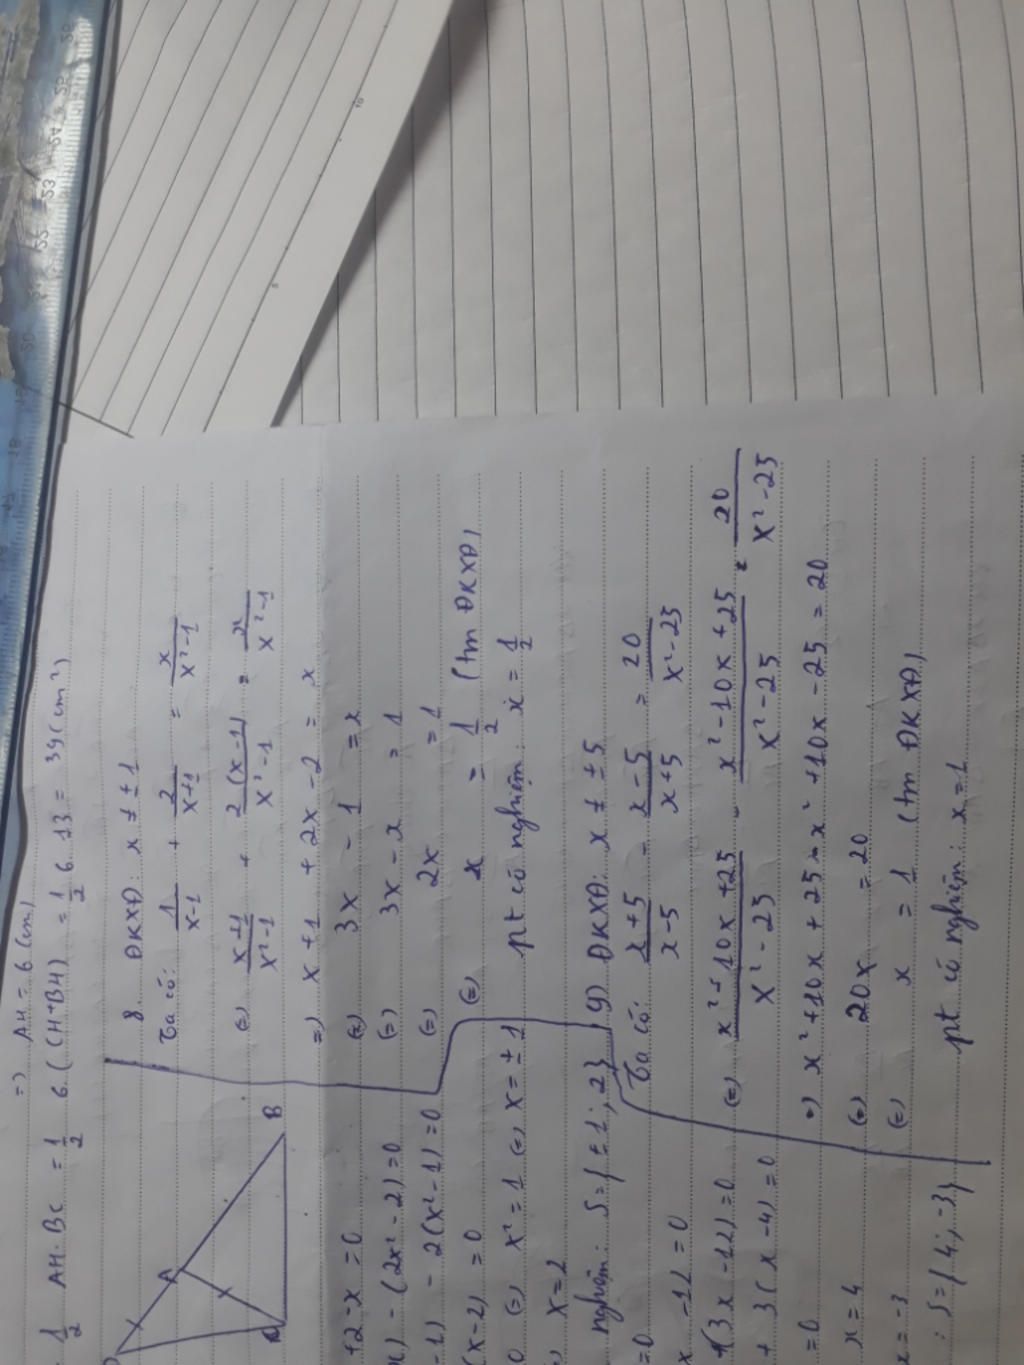 =) AH = 6 (cm)
1/2 AH.BC = 1/2 6.(CH+BH) = 1/2 6.13 = 39 (cm²)
A
B
+2-x = 0
) - (2x²-2) = 0
-1) - 2(x²-1) = 0
(x-2) = 0
0 (=) x² = 1 (=) x = ±1
x = 2
nghiệm: S = {±1; 2}
=0
x -12 = 0
+(3x-12) = 0
+ 3(x-4) = 0
=0
x = 4
x = -3
: S = {4; -3}
8. ĐKXĐ: x ≠ ±1
Ta có: 1/(x-1) + 2/(x+1) = x/(x²-1)
(=) (x+1)/(x²-1) + 2(x-1)/(x²-1) = x/(x²-1)
=) x+1 + 2x-2 = x
(=) 3x - 1 = x
(=) 3x - x = 1
(=) 2x = 1
(=) x = 1/2 (tm ĐKXĐ)
pt có nghiệm: x = 1/2
9) ĐKXĐ: x ≠ ±5
Ta có: (x+5)/(x-5) - (x-5)/(x+5) = 20/(x²-25)
(=) (x²+10x+25)/(x²-25) - (x²-10x+25)/(x²-25) = 20/(x²-25)
=) x²+10x+25-x²+10x-25 = 20
(=) 20x = 20
(=) x = 1 (tm ĐKXĐ)
pt có nghiệm: x = 1